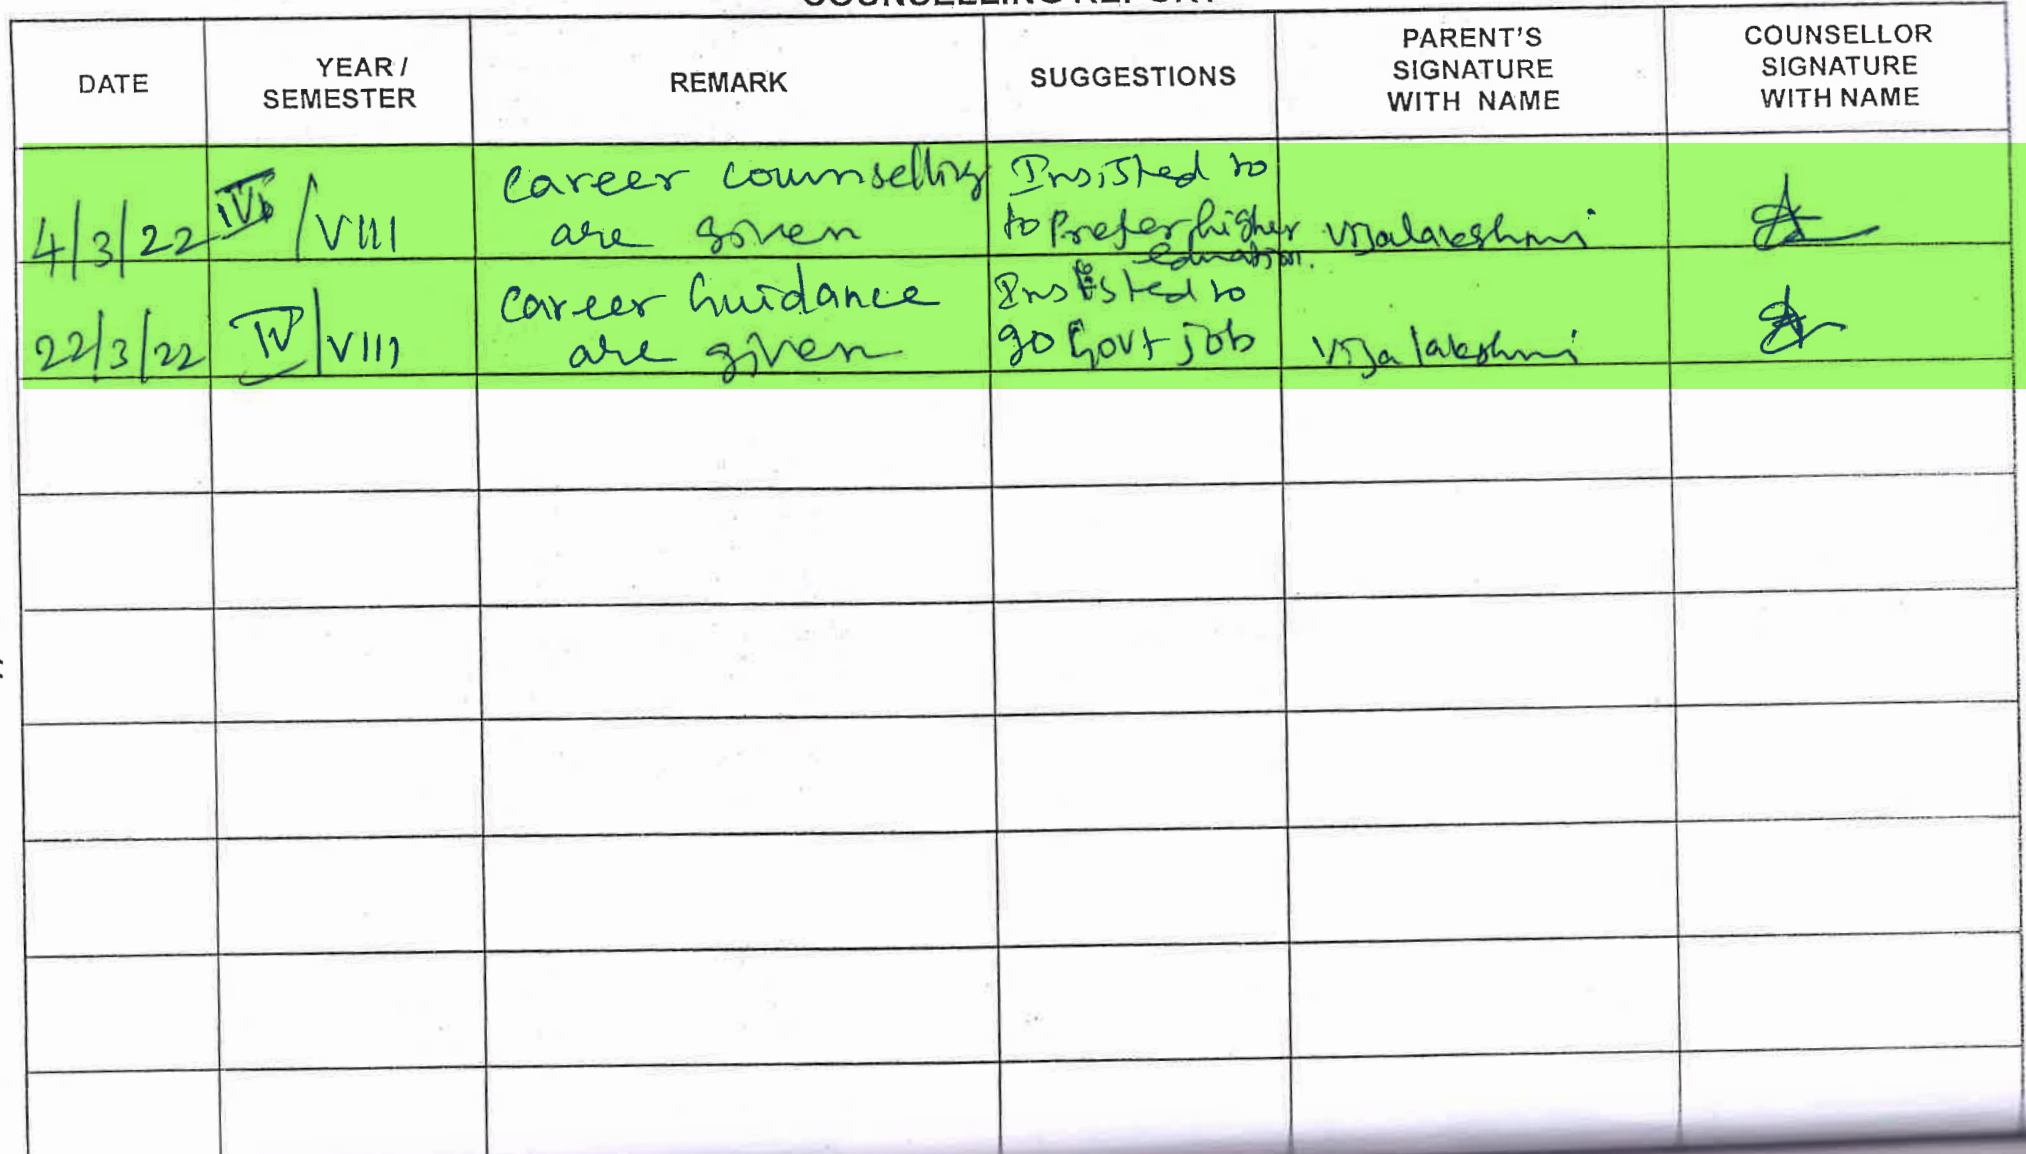 COUNSELLING REPORT
DATE
YEAR /
SEMESTER
REMARK
SUGGESTIONS
PARENT'S
SIGNATURE
WITH NAME
COUNSELLOR
SIGNATURE
WITH NAME
4/3/22
IV / VIII
Career counselling
are given
Insisted to
to Prefer higher
education.
Vijalakshmi
22/3/22
IV / VIII
Career Guidance
are given
Insisted to
go Govt job
Vijalakshmi